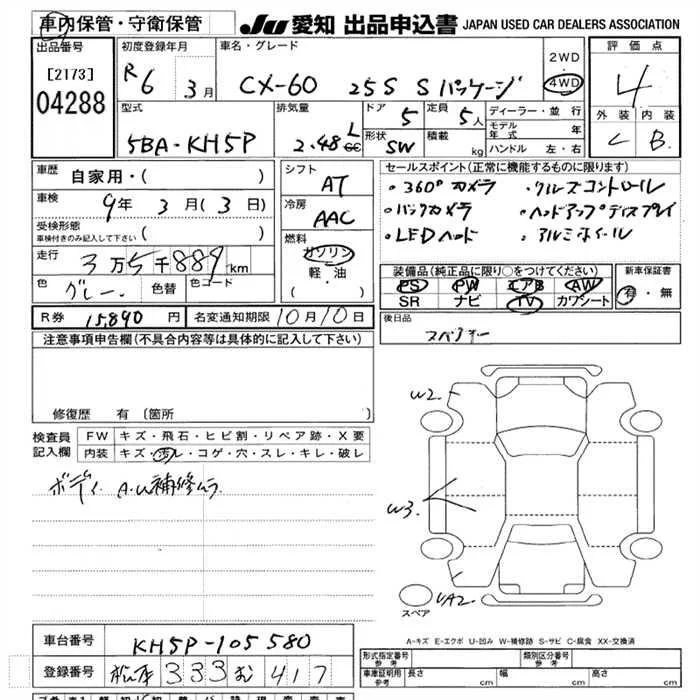 車内保管・守衛保管
JU 愛知 出品申込書 JAPAN USED CAR DEALERS ASSOCIATION
出品番号
[2173]
04288
初度登録年月
R6 3月
車名・グレード
CX-60 25S Sパッケージ
2WD
4WD
評価点
4
外装 内装
C B
型式
5BA-KH5P
排気量
2.48 L
cc
ドア 5
形状 SW
定員 5人
積載 kg
ディーラー・並行
モデル年式 年
ハンドル 左・右
車歴 自家用・( )
車検 9年 3月(3日)
受検形態
車検付きのみ記入して下さい ( )
走行 3万5千889km
色 グレー 色替 色コード
シフト
AT
冷房
AAC
燃料
ガソリン
軽・油
( ・ )
セールスポイント(正常に機能するものに限ります)
・360°カメラ ・クルーズコントロール
・バックカメラ ・ヘッドアップディスプレイ
・LEDヘッド ・アルミホイール
装備品(純正品に限り○をつけてください)
PS PW エアB AW
SR ナビ TV カワシート
新車保証書
有・無
R券 15,890円 名変通知期限 10月10日
後日品
注意事項申告欄(不具合内容等は具体的に記入して下さい)
修復歴 有〔箇所
検査員記入欄
FW キズ・飛石・ヒビ割・リペア跡・X要
内装 キズ・汚レ・コゲ・穴・スレ・キレ・破レ
ボディ A.U補修ムラ
W2
W3
UA2
スペア
A-キズ E-エクボ U-凹み W-補修跡 S-サビ C-腐食 XX-交換済
車台番号 KH5P-105580
登録番号 333 417
形式指定番号
参考
類別区分番号
参考
車庫証明用
参考
長さ cm 幅 cm 高さ cm